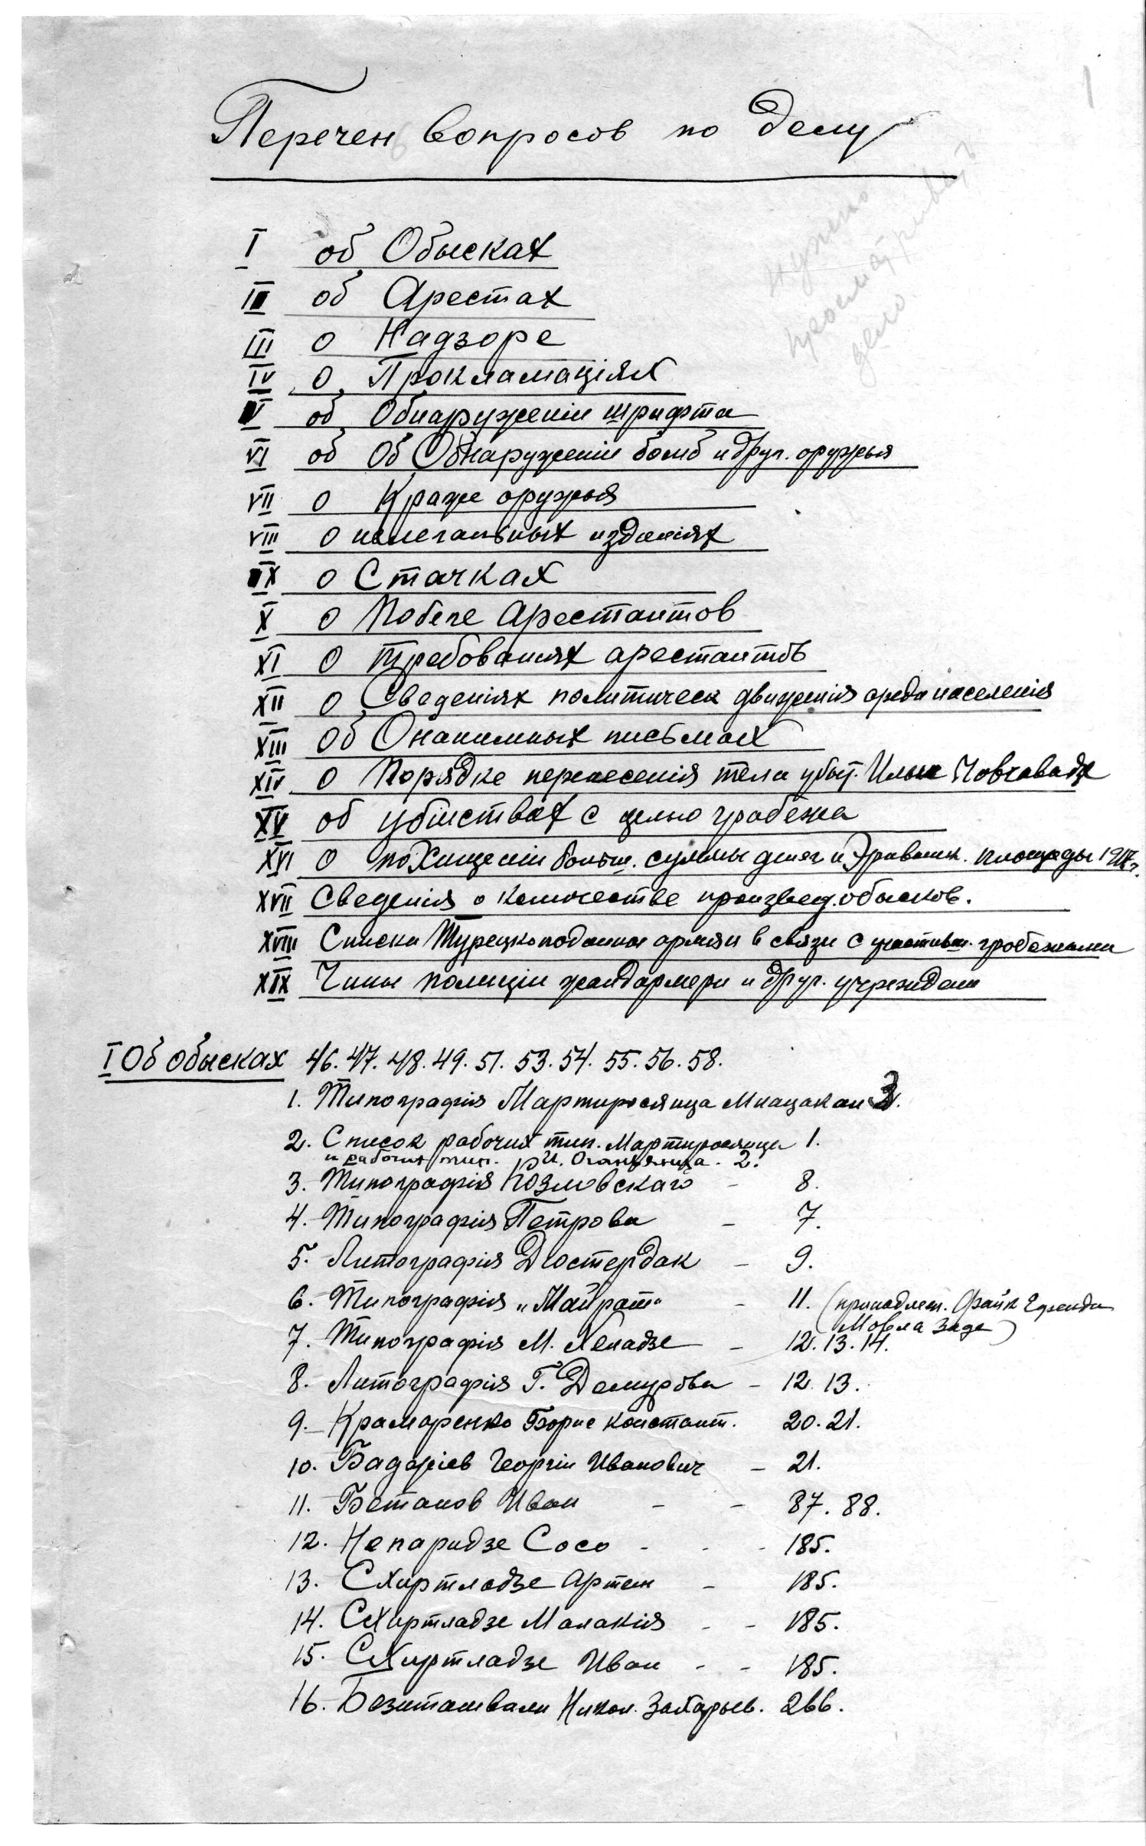 1
Перечен вопросов по делу
нужно
просматриват
дело
I об Обысках
II об Арестах
III о Надзоре
IV о Прокламаціях
V об Обнаруженіи шрифта
VI об Об Обнаруженіи бомб и друг. оружья
VII о Краже оружья
VIII о нелегальных изданіях
IX о Стачках
X о Побеге Арестантов
XI о Требованіях арестантов
XII о Сведеніях политическ движенія среди населенія
XIII об Онанимных письмах
XIV о Порядке перенесенія тела убит. Ильи Човчавадз
XV об убійствах с целью грабежа
XVI о похищеніи больш. суммы денег и Эриванск. площады 1907г.
XVII Сведенія о количестве произвед. обысков.
XVIII Списки Турецкоподанных армян в связи с грабежами
XIX Чины полиции жандармери и друг. учреждени
I Об обысках 46. 47. 48. 49. 51. 53. 54. 55. 56. 58.
1. Типографія Мартиросянца Мнацакан 3.
2. Список рабочих тип. Мартиросянца 1.
и рабочих тип. И. Оганянца. 2.
3. Типографія Козловскаго - 8.
4. Типографія Петрова - 7.
5. Литографія Дюстердак - 9.
6. Типографія „Майрат" - 11. (принадлеж. Файк Ефенди
Мовла Заде)
7. Типографія М. Хеладзе - 12. 13. 14.
8. Литографія Г. Демурова - 12. 13.
9. Крамаренко Борис констант. 20. 21.
10. Бадаріев Георгіи Иванович - 21.
11. Бетанов Иван - - 87. 88.
12. Непаридзе Сосо - - - 185.
13. Схиртладзе Артем - 185.
14. Схиртладзе Малакія - - 185.
15. Схиртладзе Иван - - 185.
16. Безиташвили Никол. Захарьев. 266.